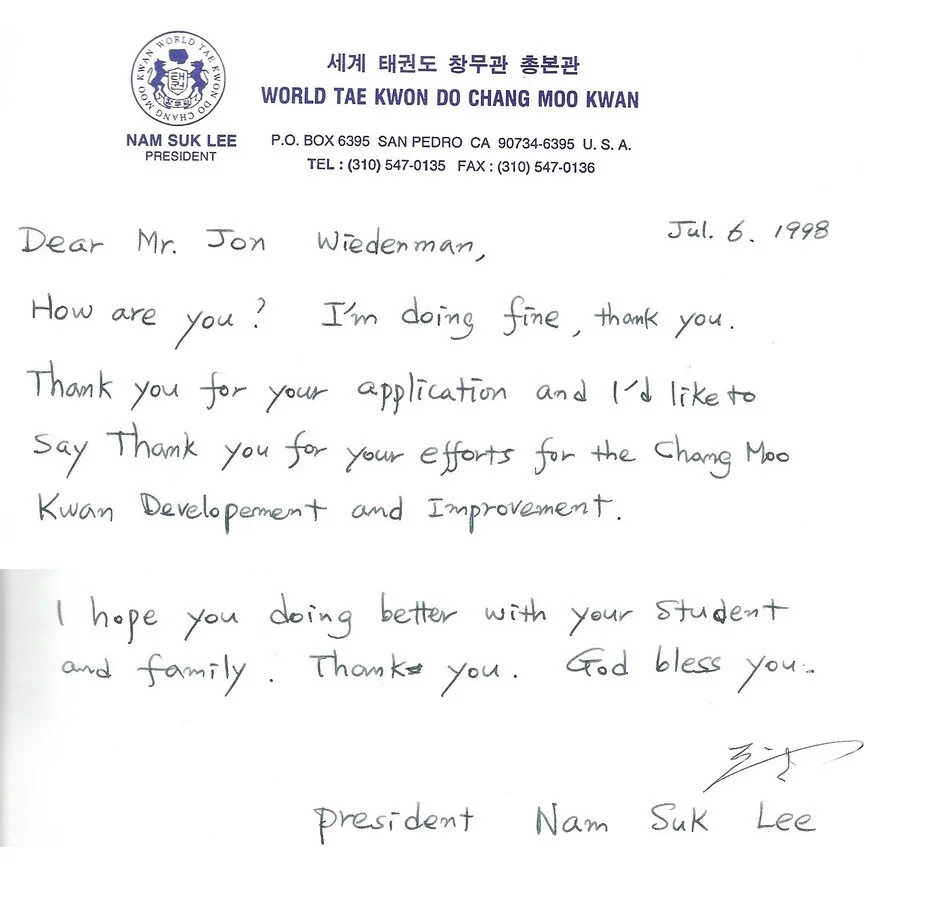 WORLD TAE KWON DO CHANG MOO KWAN
세계 태권도 창무관 총본관
WORLD TAE KWON DO CHANG MOO KWAN
NAM SUK LEE
PRESIDENT
P.O. BOX 6395 SAN PEDRO CA 90734-6395 U. S. A.
TEL : (310) 547-0135 FAX : (310) 547-0136
Jul. 6. 1998
Dear Mr. Jon Wiedenman,
How are you? I'm doing fine, thank you.
Thank you for your application and I'd like to
Say Thank you for your efforts for the Chang Moo
Kwan Developement and Improvement.
I hope you doing better with your Student
and family. Thank you. God bless you.
president Nam Suk Lee